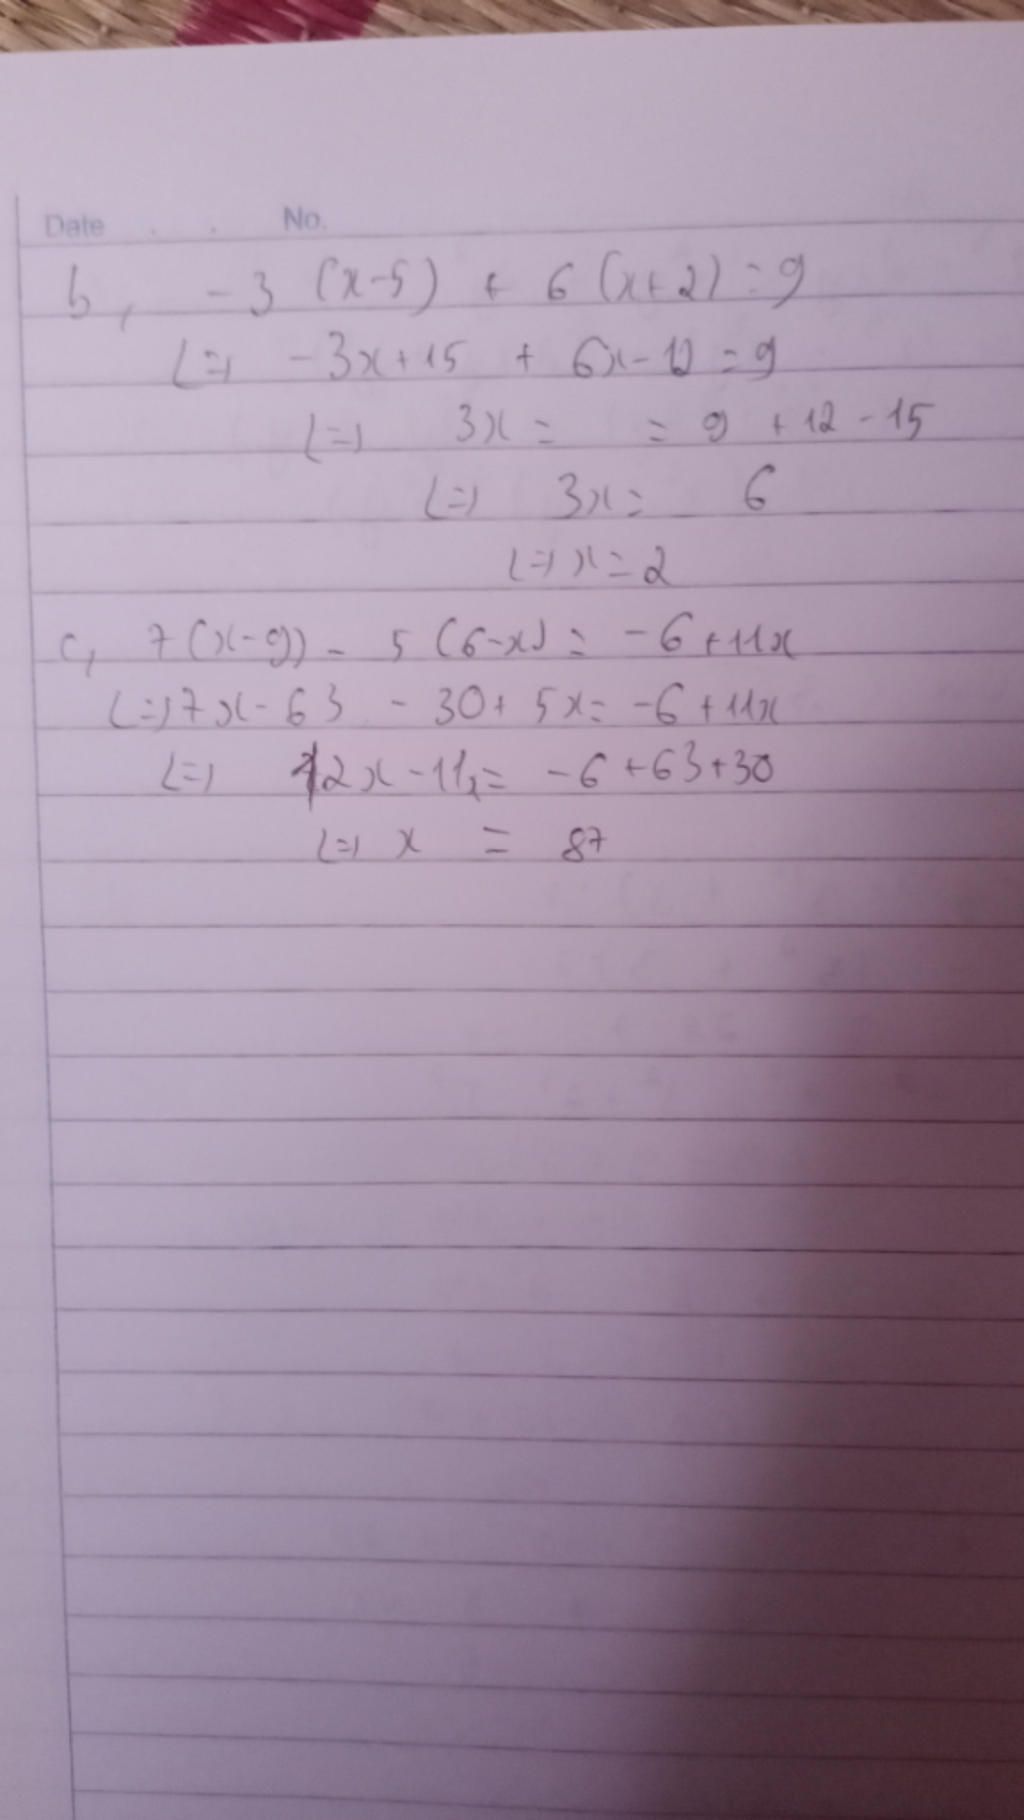 Date . . No.
b, -3 (x-5) + 6 (x+2) = 9
<=> -3x+15 + 6x-12 = 9
<=> 3x = = 9 +12 -15
<=> 3x = 6
<=> x = 2
c, 7(x-9) - 5 (6-x) = -6 +11x
<=> 7x-63 - 30+ 5x = -6 +11x
<=> 12x -11x = -6 +63+30
<=> x = 87